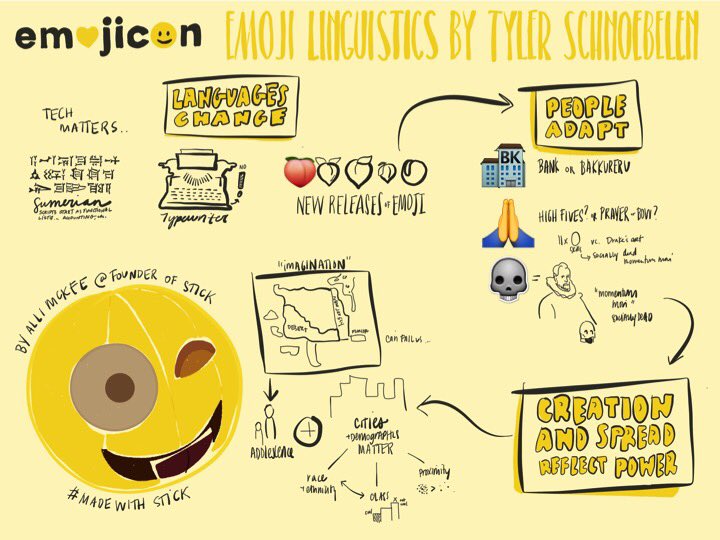 emojicon
EMOJI LINGUISTICS BY TYLER SCHNOEBELEN
TECH
MATTERS..
Sumerian
SCRIPTS START AS FUNCTIONAL
LISTS... ACCOUNTING, etc.
LANGUAGES
CHANGE
NO
!
Typewriter
NEW RELEASES of EMOJI
PEOPLE
ADAPT
BK
BANK OR BAKKURERU
HIGH FIVES? or PRAYER or BOW?
vs. Drake's
socially dead
momentum mori
=
"momentum
mori"
socially dead
BY ALLI MCKEE @ FOUNDER OF STICK
#MADE WITH STICK
"IMAGINATION"
DESERT
CAN FAIL US...
Adolescence
+
CITIES
+ DEMOGRAPHICS
MATTER
race
+ ethnicity
CLASS
Proximity
CREATION
AND SPREAD
REFLECT POWER